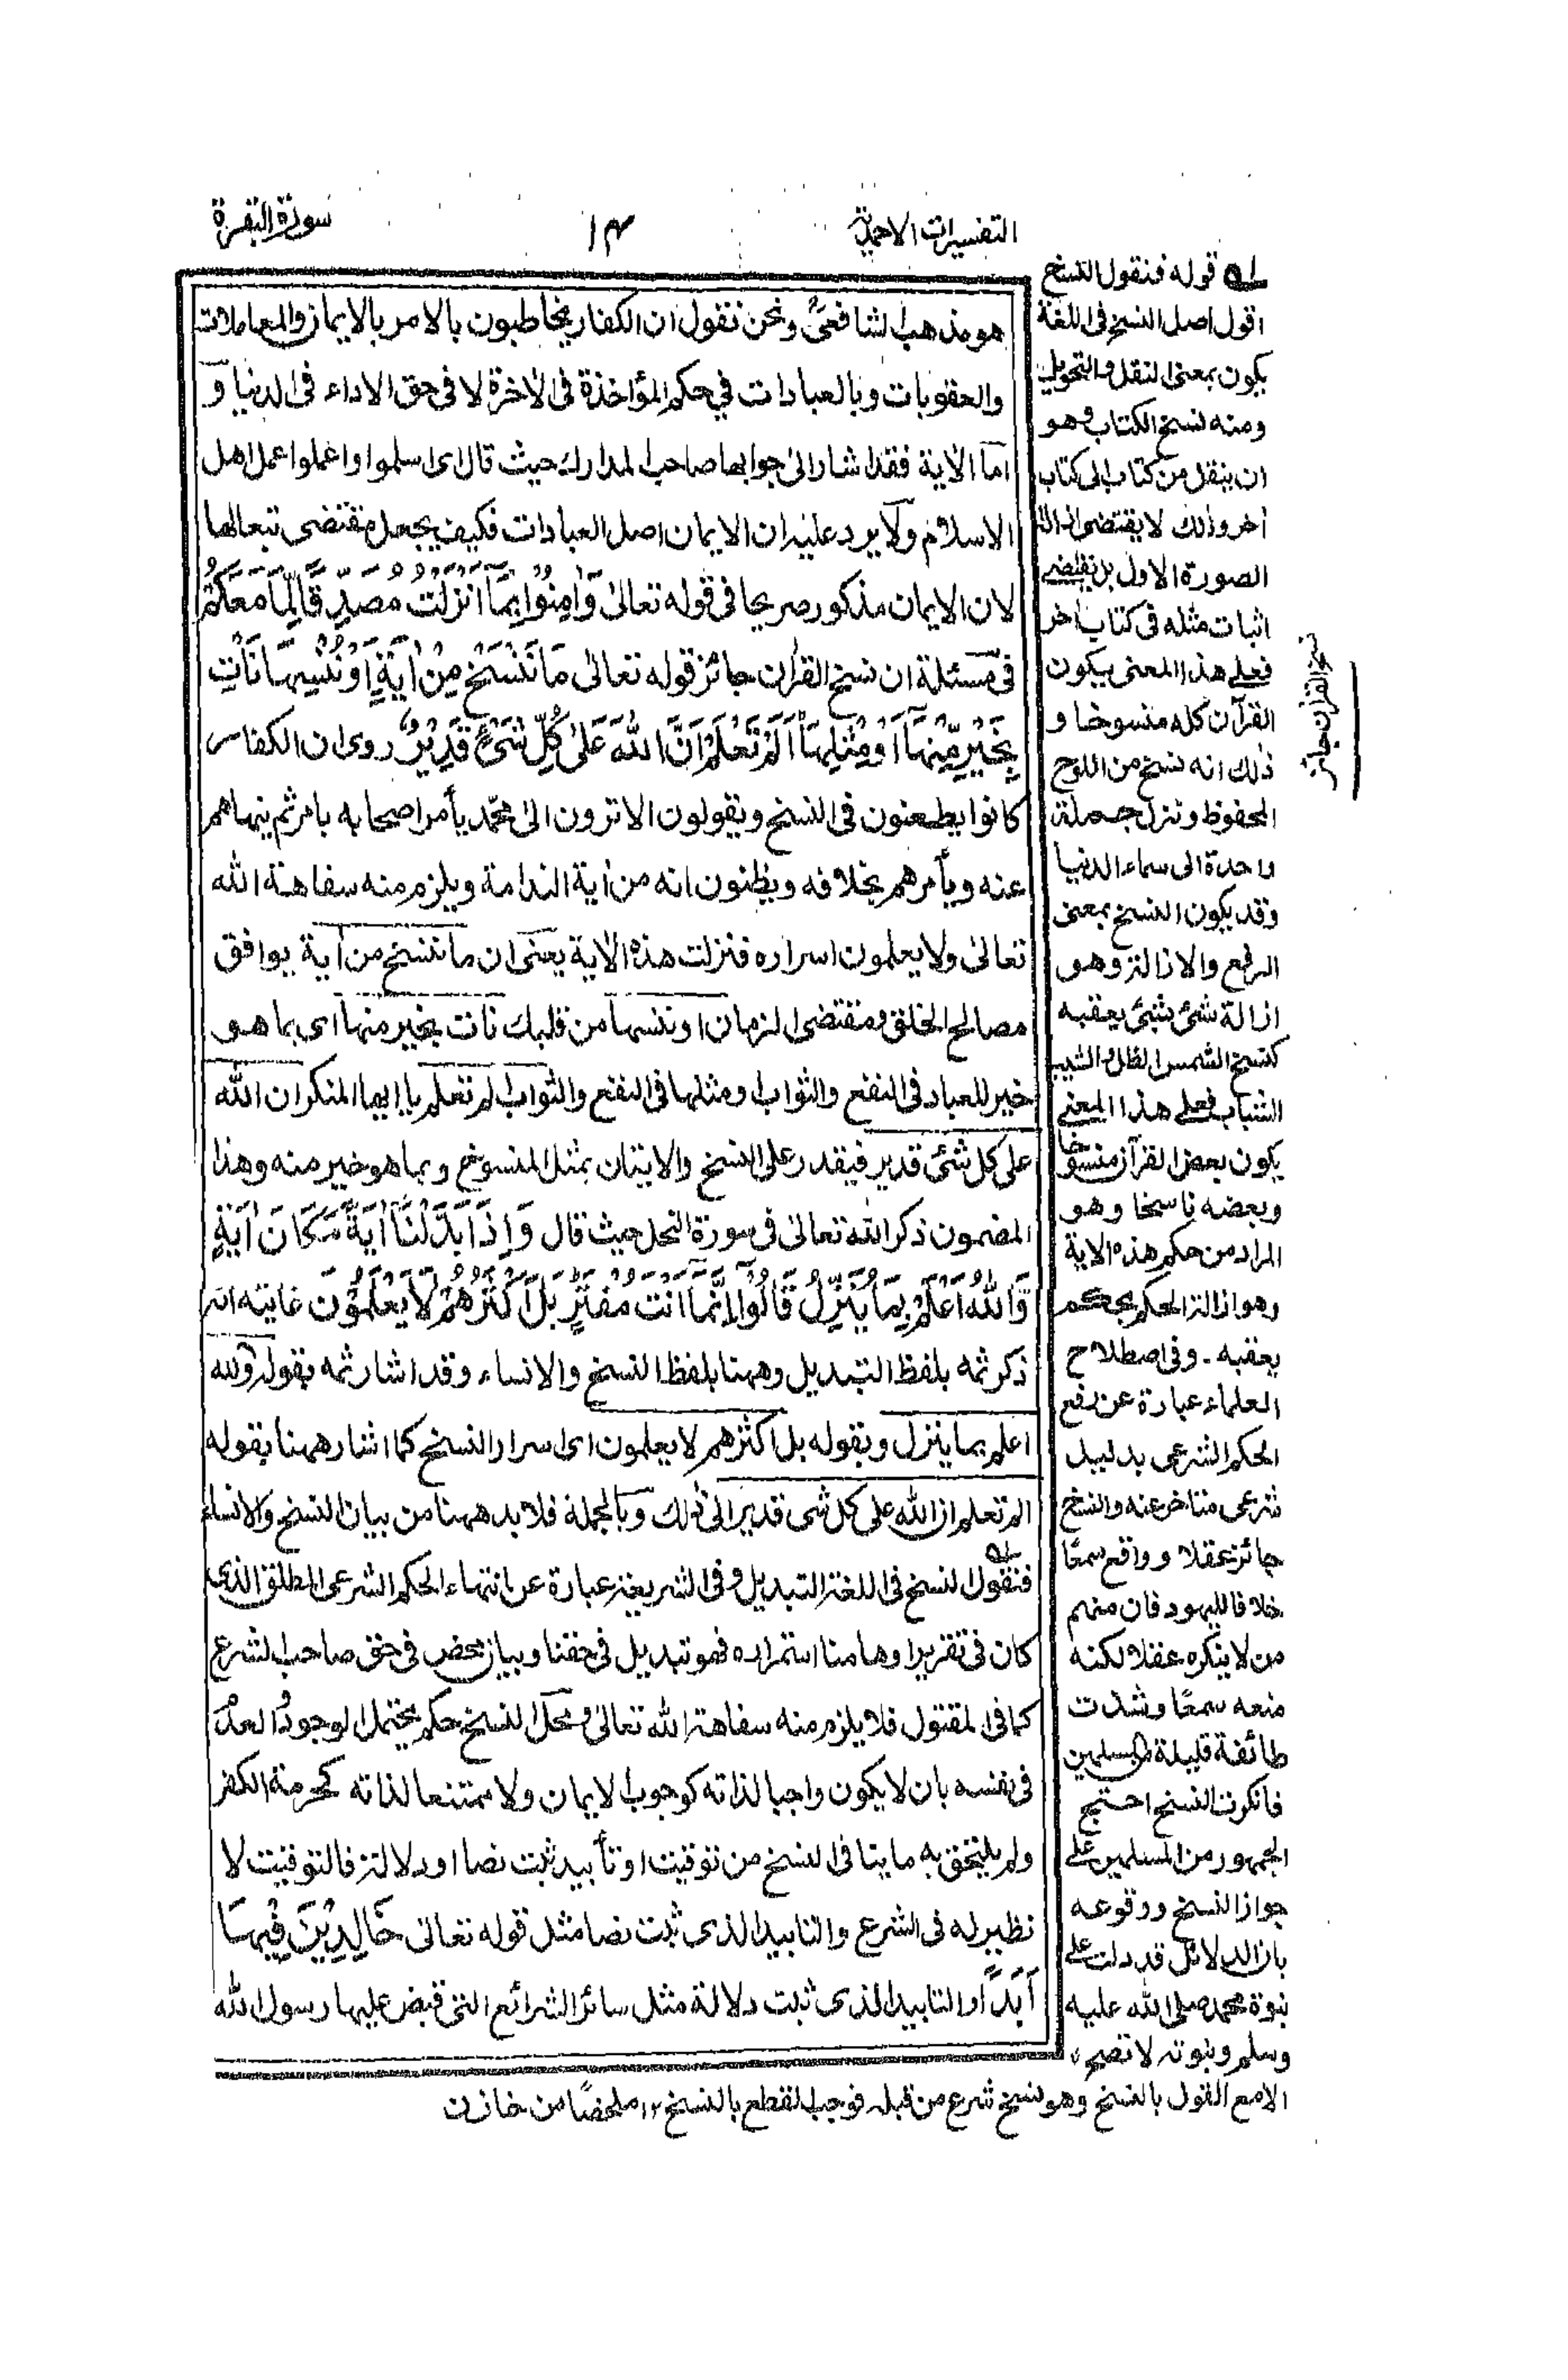 التفسيرات الاحمدية
١٤
سورة البقرة
هو مذهب الشافعيؒ ونحن نقول ان الكفار يخاطبون بالامر بالايمان والمعاملات
والعقوبات وبالعبادات في حكم المؤاخذة في الأخرة لا في حق الاداء في الدنيا و
اما الأية فقد اشار الى جوابها صاحب المدارك حيث قال اى اسلموا واعملوا عمل اهل
الاسلام ولا يرد عليه ان الايمان اصل العبادات فكيف يجعل مقتضى تبعا لها
لان الايمان مذكور صريحا في قوله تعالىٰ وَاٰمِنُوْا بِمَآ اَنْزَلْتُ مُصَدِّقًا لِّمَا مَعَكُمْ
في مسئلة ان نسخ القرأن جائز قوله تعالىٰ مَا نَنْسَخْ مِنْ اٰيَةٍ اَوْ نُنْسِهَا نَأْتِ
بِخَيْرٍ مِّنْهَآ اَوْ مِثْلِهَآ اَلَمْ تَعْلَمْ اَنَّ اللهَ عَلىٰ كُلِّ شَيْءٍ قَدِيْرٌ روى ان الكفار
كانوا يطعنون في النسخ ويقولون الا ترون الىٰ محمد يأمر اصحابه بامر ثم ينهاهم
عنه ويأمرهم بخلافه ويظنون انه من أية الندامة ويلزم منه سفاهة الله
تعالىٰ ولا يعلمون اسراره فنزلت هذه الأية يعنى ان ما ننسخ من أية يوافق
مصالح الخلق ومقتضى الزمان او ننسها من قلبك نات بخير منها اى بما هو
خير للعباد في النفع والثواب او مثلها في النفع والثواب الم تعلم يا ايها المنكر ان الله
على كل شئ قدير فيقدر على النسخ والاتيان بمثل المنسوخ وبما هو خير منه وهذا
المضمون ذكر الله تعالىٰ في سورة النحل حيث قال وَاِذَا بَدَّلْنَآ اٰيَةً مَّكَانَ اٰيَةٍ
وَّاللهُ اَعْلَمُ بِمَا يُنَزِّلُ قَالُوْآ اِنَّمَآ اَنْتَ مُفْتَرٍ بَلْ اَكْثَرُهُمْ لَا يَعْلَمُوْنَ غايته انه
ذكر ثمه بلفظ التبديل وههنا بلفظ النسخ والانساء وقد اشار ثمه بقوله والله
اعلم بما ينزل وبقوله بل اكثرهم لا يعلمون اى اسرار النسخ كما اشار ههنا بقوله
الم تعلم ان الله على كل شى قدير الىٰ ذلك وبالجملة فلا بد ههنا من بيان النسخ والانساء
فنقول النسخ في اللغة التبديل وفي الشريعة عبارة عن انتهاء الحكم الشرعى المطلق الذى
كان في تقرير اوهامنا استمراره فهو تبديل في حقنا وبيان محض في حق صاحب الشرع
كما في المقتول فلا يلزم منه سفاهة الله تعالىٰ ومحل النسخ حكم يحتمل الوجود والعدم
في نفسه بان لا يكون واجبا لذاته كوجوب الايمان ولا ممتنعا لذاته كحرمة الكفر
ولم يلتحق به ما ينافى النسخ من توقيت او تأبيد ثبت نصا او دلالة فالتوقيت لا
نظير له في الشرع والتابيد الذى ثبت نصا مثل قوله تعالى خَالِدِيْنَ فِيْهَا
اَبَدًا والتابيد الذى ثبت دلالة مثل سائر الشرائع التى قبض عليها رسول الله
له قوله فنقول النسخ
اقول اصل النسخ في اللغة
يكون بمعنى النقل والتحويل
ومنه نسخ الكتاب وهو
ان ينقل من كتاب الى كتاب
أخر وذلك لا يقتضى ازالة
الصورة الاول بل يقتضى
اثبات مثله في كتاب أخر
فعلى هذا المعنى يكون
القرآن كله منسوخا و
ذلك انه نسخ من اللوح
المحفوظ ونزل جملة
واحدة الى سماء الدنيا
وقد يكون النسخ بمعنى
الرفع والازالة وهو
ازالة شئ بشئ يعقبه
كنسخ الشمس الظل والشيب
الشباب فعلى هذا المعنى
يكون بعض القرآن منسوخا
وبعضه ناسخا وهو
المراد من حكم هذه الاية
وهو ازالة الحكم بحكم
يعقبه - وفي اصطلاح
العلماء عبارة عن رفع
الحكم الشرعى بدليل
شرعى متاخر عنه والنسخ
جائز عقلا وواقع سمعًا
خلافا لليهود فان منهم
من لا ينكره عقلا لكنه
منعه سمعًا وشذت
طائفة قليلة من المسلمين
فانكرت النسخ احتج
الجمهور من المسلمين على
جواز النسخ ووقوعه
بان الدلائل قد دلت على
نبوة محمد صلى الله عليه
وسلم ونبوته لا تصح
الا مع القول بالنسخ وهو نسخ شرع من قبله فوجب القطع بالنسخ ١٢ ملخصًا من خازن
نسخ القرأن جائز